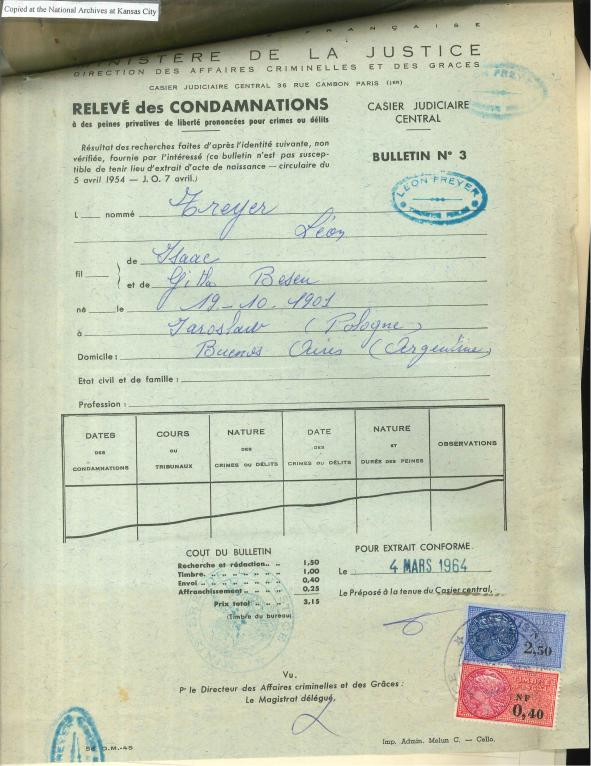 Copied at the National Archives at Kansas City
FRANÇAISE
MINISTERE DE LA JUSTICE
DIRECTION DES AFFAIRES CRIMINELLES ET DES GRACES
CASIER JUDICIAIRE CENTRAL 36 RUE CAMBON PARIS (1ER)
RELEVÉ des CONDAMNATIONS
à des peines privatives de liberté prononcées pour crimes ou délits
CASIER JUDICIAIRE
CENTRAL
Résultat des recherches faites d'après l'identité suivante, non
vérifiée, fournie par l'intéressé (ce bulletin n'est pas suscep-
tible de tenir lieu d'extrait d'acte de naissance — circulaire du
5 avril 1954 — J. O. 7 avril.)
BULLETIN N° 3
LÉON FREYER
L nommé Freyer
Léon
fil
de Isaac
et de Gitla Besen
né le 19-10-1901
à Jaroslaw (Pologne)
Domicile : Buenos Aires (Argentine)
Etat civil et de famille :
Profession :
DATES DES CONDAMNATIONS
COURS OU TRIBUNAUX
NATURE DES CRIMES OU DÉLITS
DATE DES CRIMES OU DÉLITS
NATURE ET DURÉE DES PEINES
OBSERVATIONS
COUT DU BULLETIN
Recherche et rédaction.. .. 1,50
Timbre. .. .. .. .. .. .. 1,00
Envoi .. .. .. .. .. .. .. 0,40
Affranchissement .. .. .. .. 0,25
Prix total .. .. 3,15
(Timbre du bureau)
POUR EXTRAIT CONFORME.
Le 4 MARS 1964
Le Préposé à la tenue du Casier central,
2,50
NF
0,40
Vu.
Pr le Directeur des Affaires criminelles et des Grâces :
Le Magistrat délégué,
FREYER
D.M.-45
Imp. Admin. Melun C. — Cello.